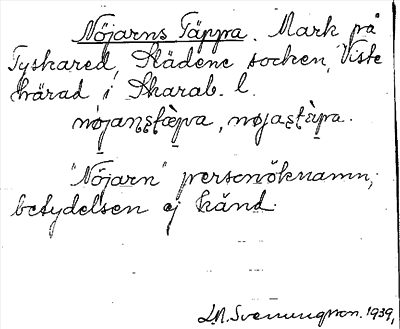 Nöjarns Täppa. Mark på
Tyskared, Slädene socken, Viste
härad i Skarab. l.
nø̀janʂtæ̀pa, nø̀jaʂtæ̀pa.
"Nöjarn" personöknamn,
betydelsen ej känd.
L.M. Svenungsson. 1939,